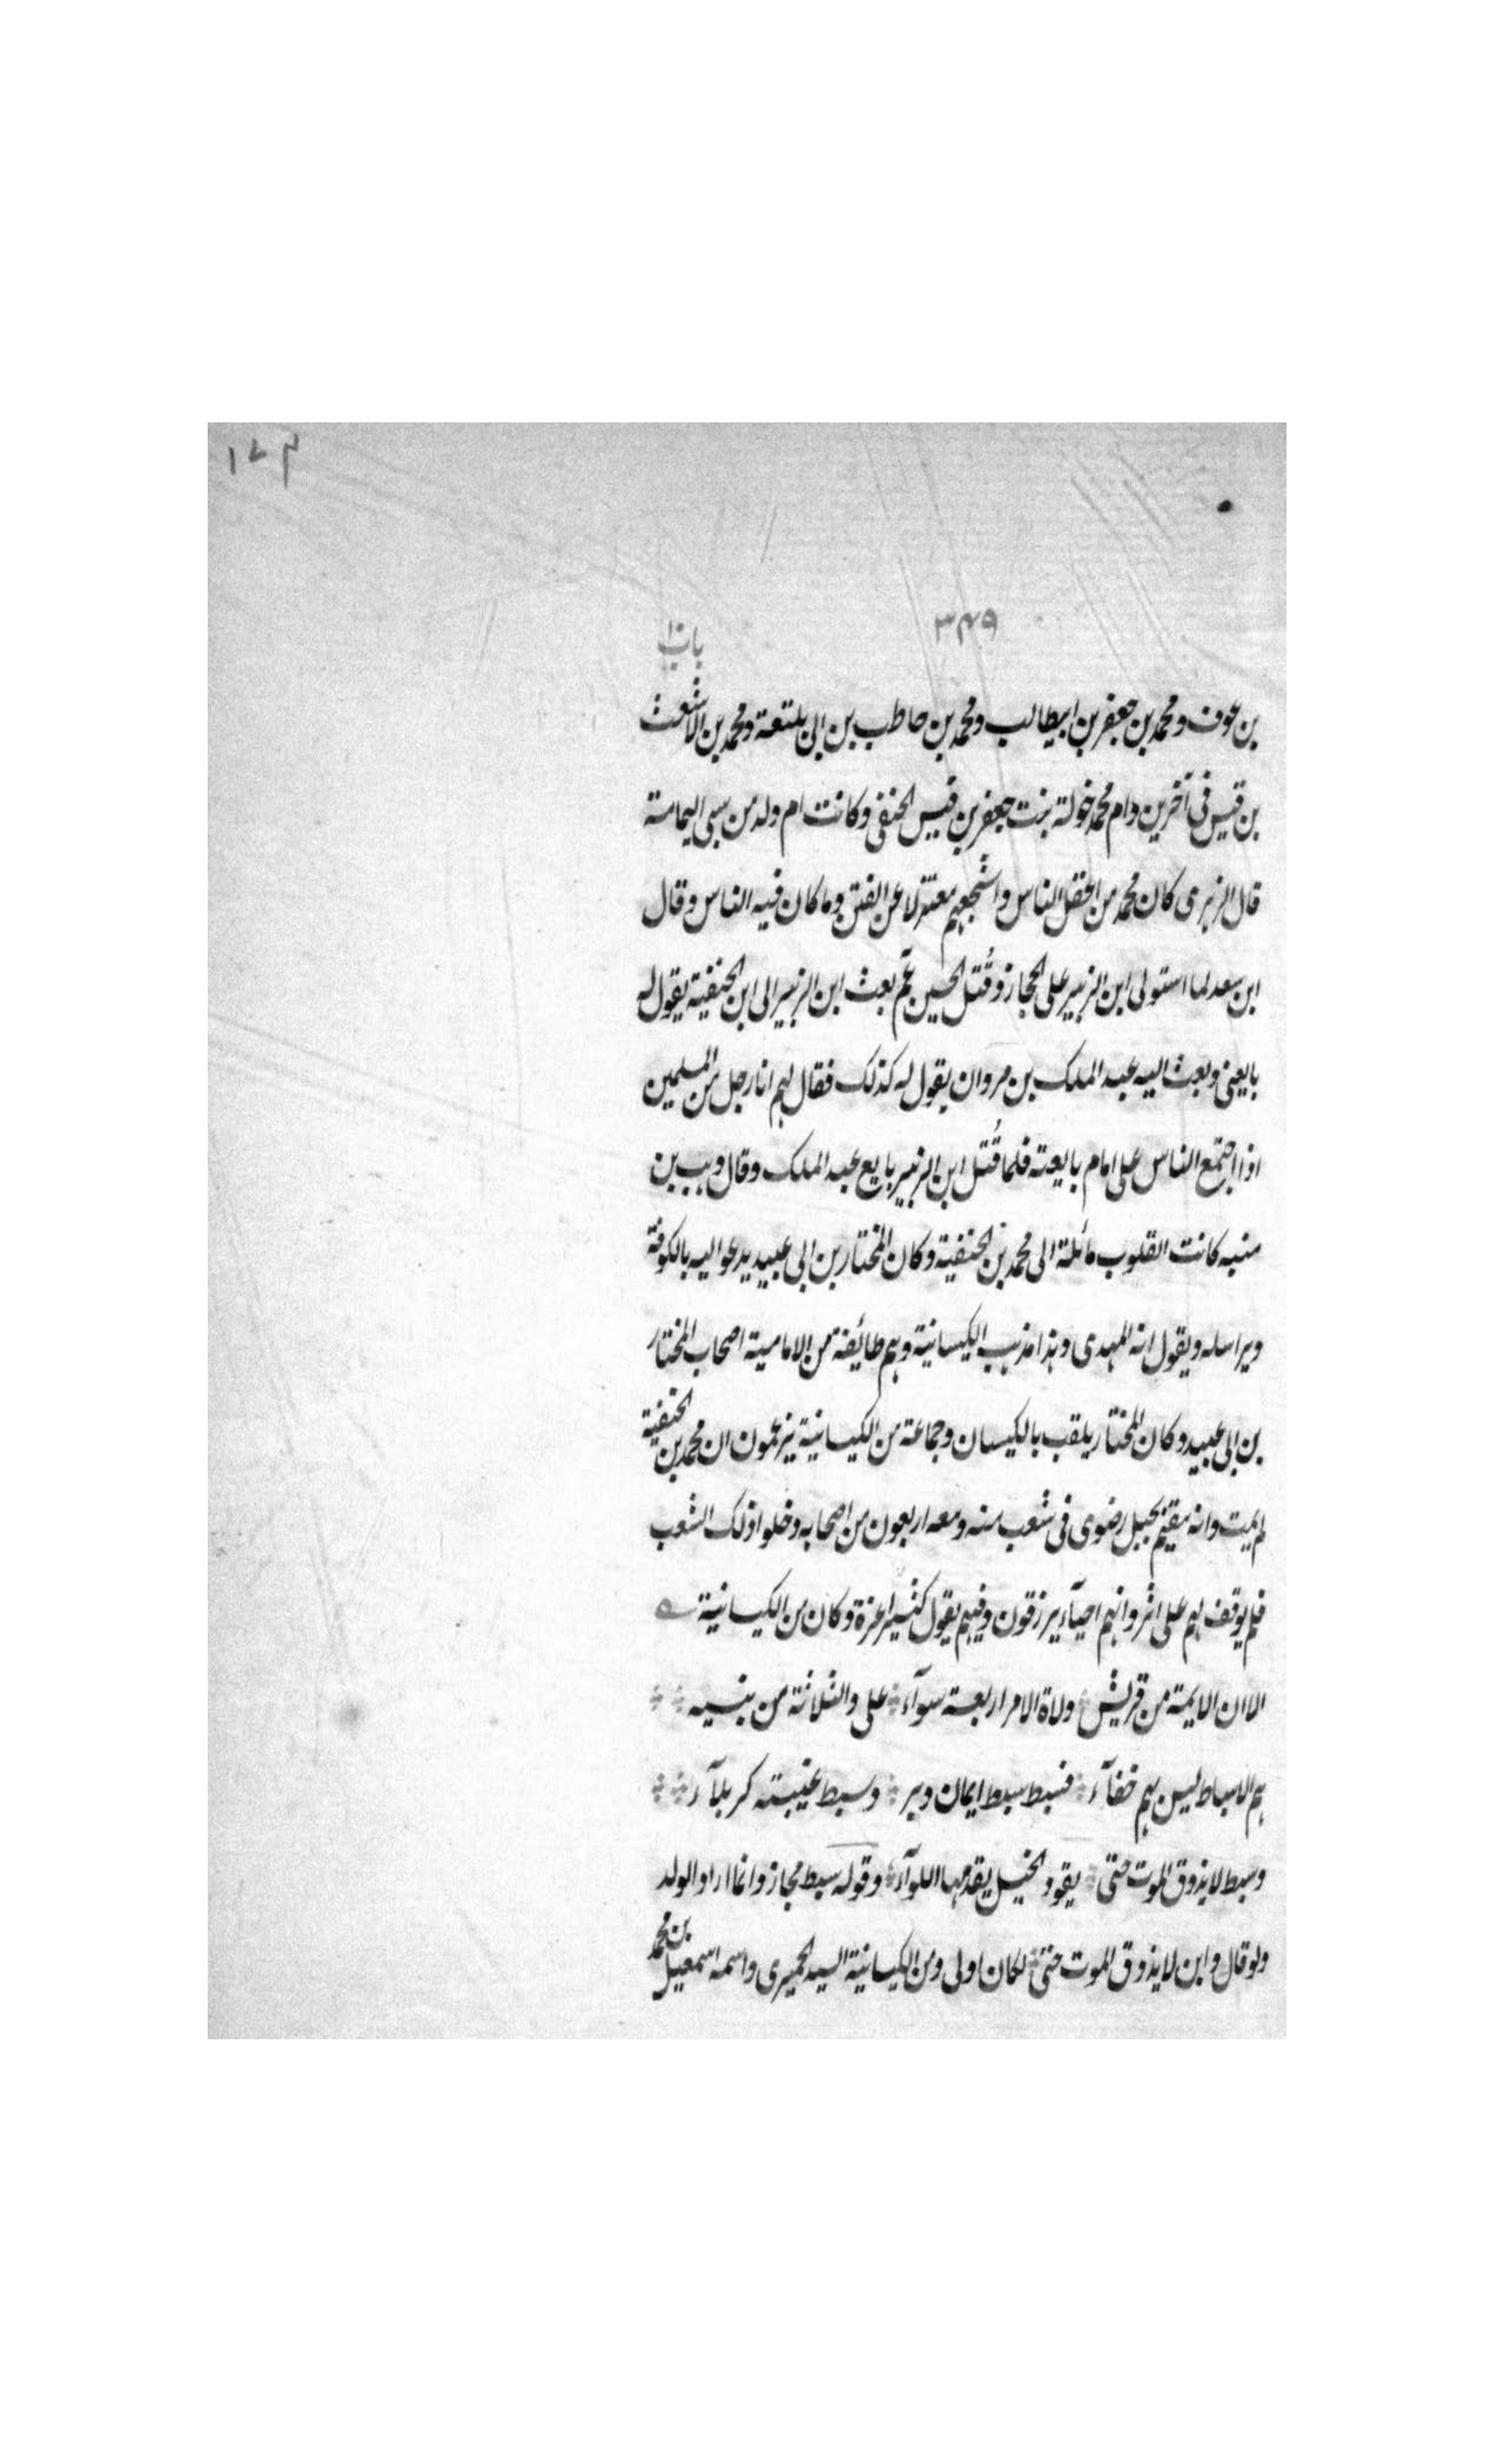 ١٧٤
٣٤٩
باب ١٠
بن عوف ومحمد بن جعفر بن ابيطالب ومحمد بن حاطب بن ابى بلتعة ومحمد بن الاشعث
بن قيس فى آخرين وام محمد خولة بنت جعفر بن قيس الحنفى وكانت ام ولد من سبى اليمامة
قال الزهرى كان محمد من اعقل الناس واشجعهم معتزلا عن الفتن وما كان فيه الناس وقال
ابن سعد لما استولى ابن الزبير على الحجاز وقُتل الحسين عم بعث ابن الزبير الى ابن الحنفية يقول له
بايعنى وبعث اليه عبد الملك بن مروان يقول له كذلك فقال لهم انا رجل من المسلمين
اذا اجتمع الناس على امام بايعته فلما قُتل ابن الزبير بايع عبد الملك وقال وهب بن
منبه كانت القلوب مائلة الى محمد بن الحنفية وكان المختار بن ابى عبيد يدعو اليه بالكوفة
ويراسله ويقول انه المهدى وهذا مذهب الكيسانية وهم طائفة من الامامية اصحاب المختار
بن ابى عبيد وكان المختار يلقب بالكيسان وجماعة من الكيسانية يزعمون ان محمد بن الحنفية
لم يمت وانه مقيم بجبل رضوى فى شعب منه ومعه اربعون من اصحابه دخلوا ذلك الشعب
فلم يوقف لهم على اثر وانهم احيآء يرزقون وفيهم يقول كثير عزة وكان من الكيسانية
الا ان الايمة من قريش ولاة الامر اربعة سوآء على والثلاثة من بنيه
هم الاسباط ليس بهم خفآء فسبط سبط ايمان وبر وسبط غيبته كربلآء
وسبط لا يذوق الموت حتى يقود الخيل يقدمها اللوآء وقوله سبط مجاز وانما اراد الولد
ولو قال وابن لا يذوق الموت حتى لكان اولى ومن الكيسانية السيد الحميرى واسمه اسمعيل بن محمد